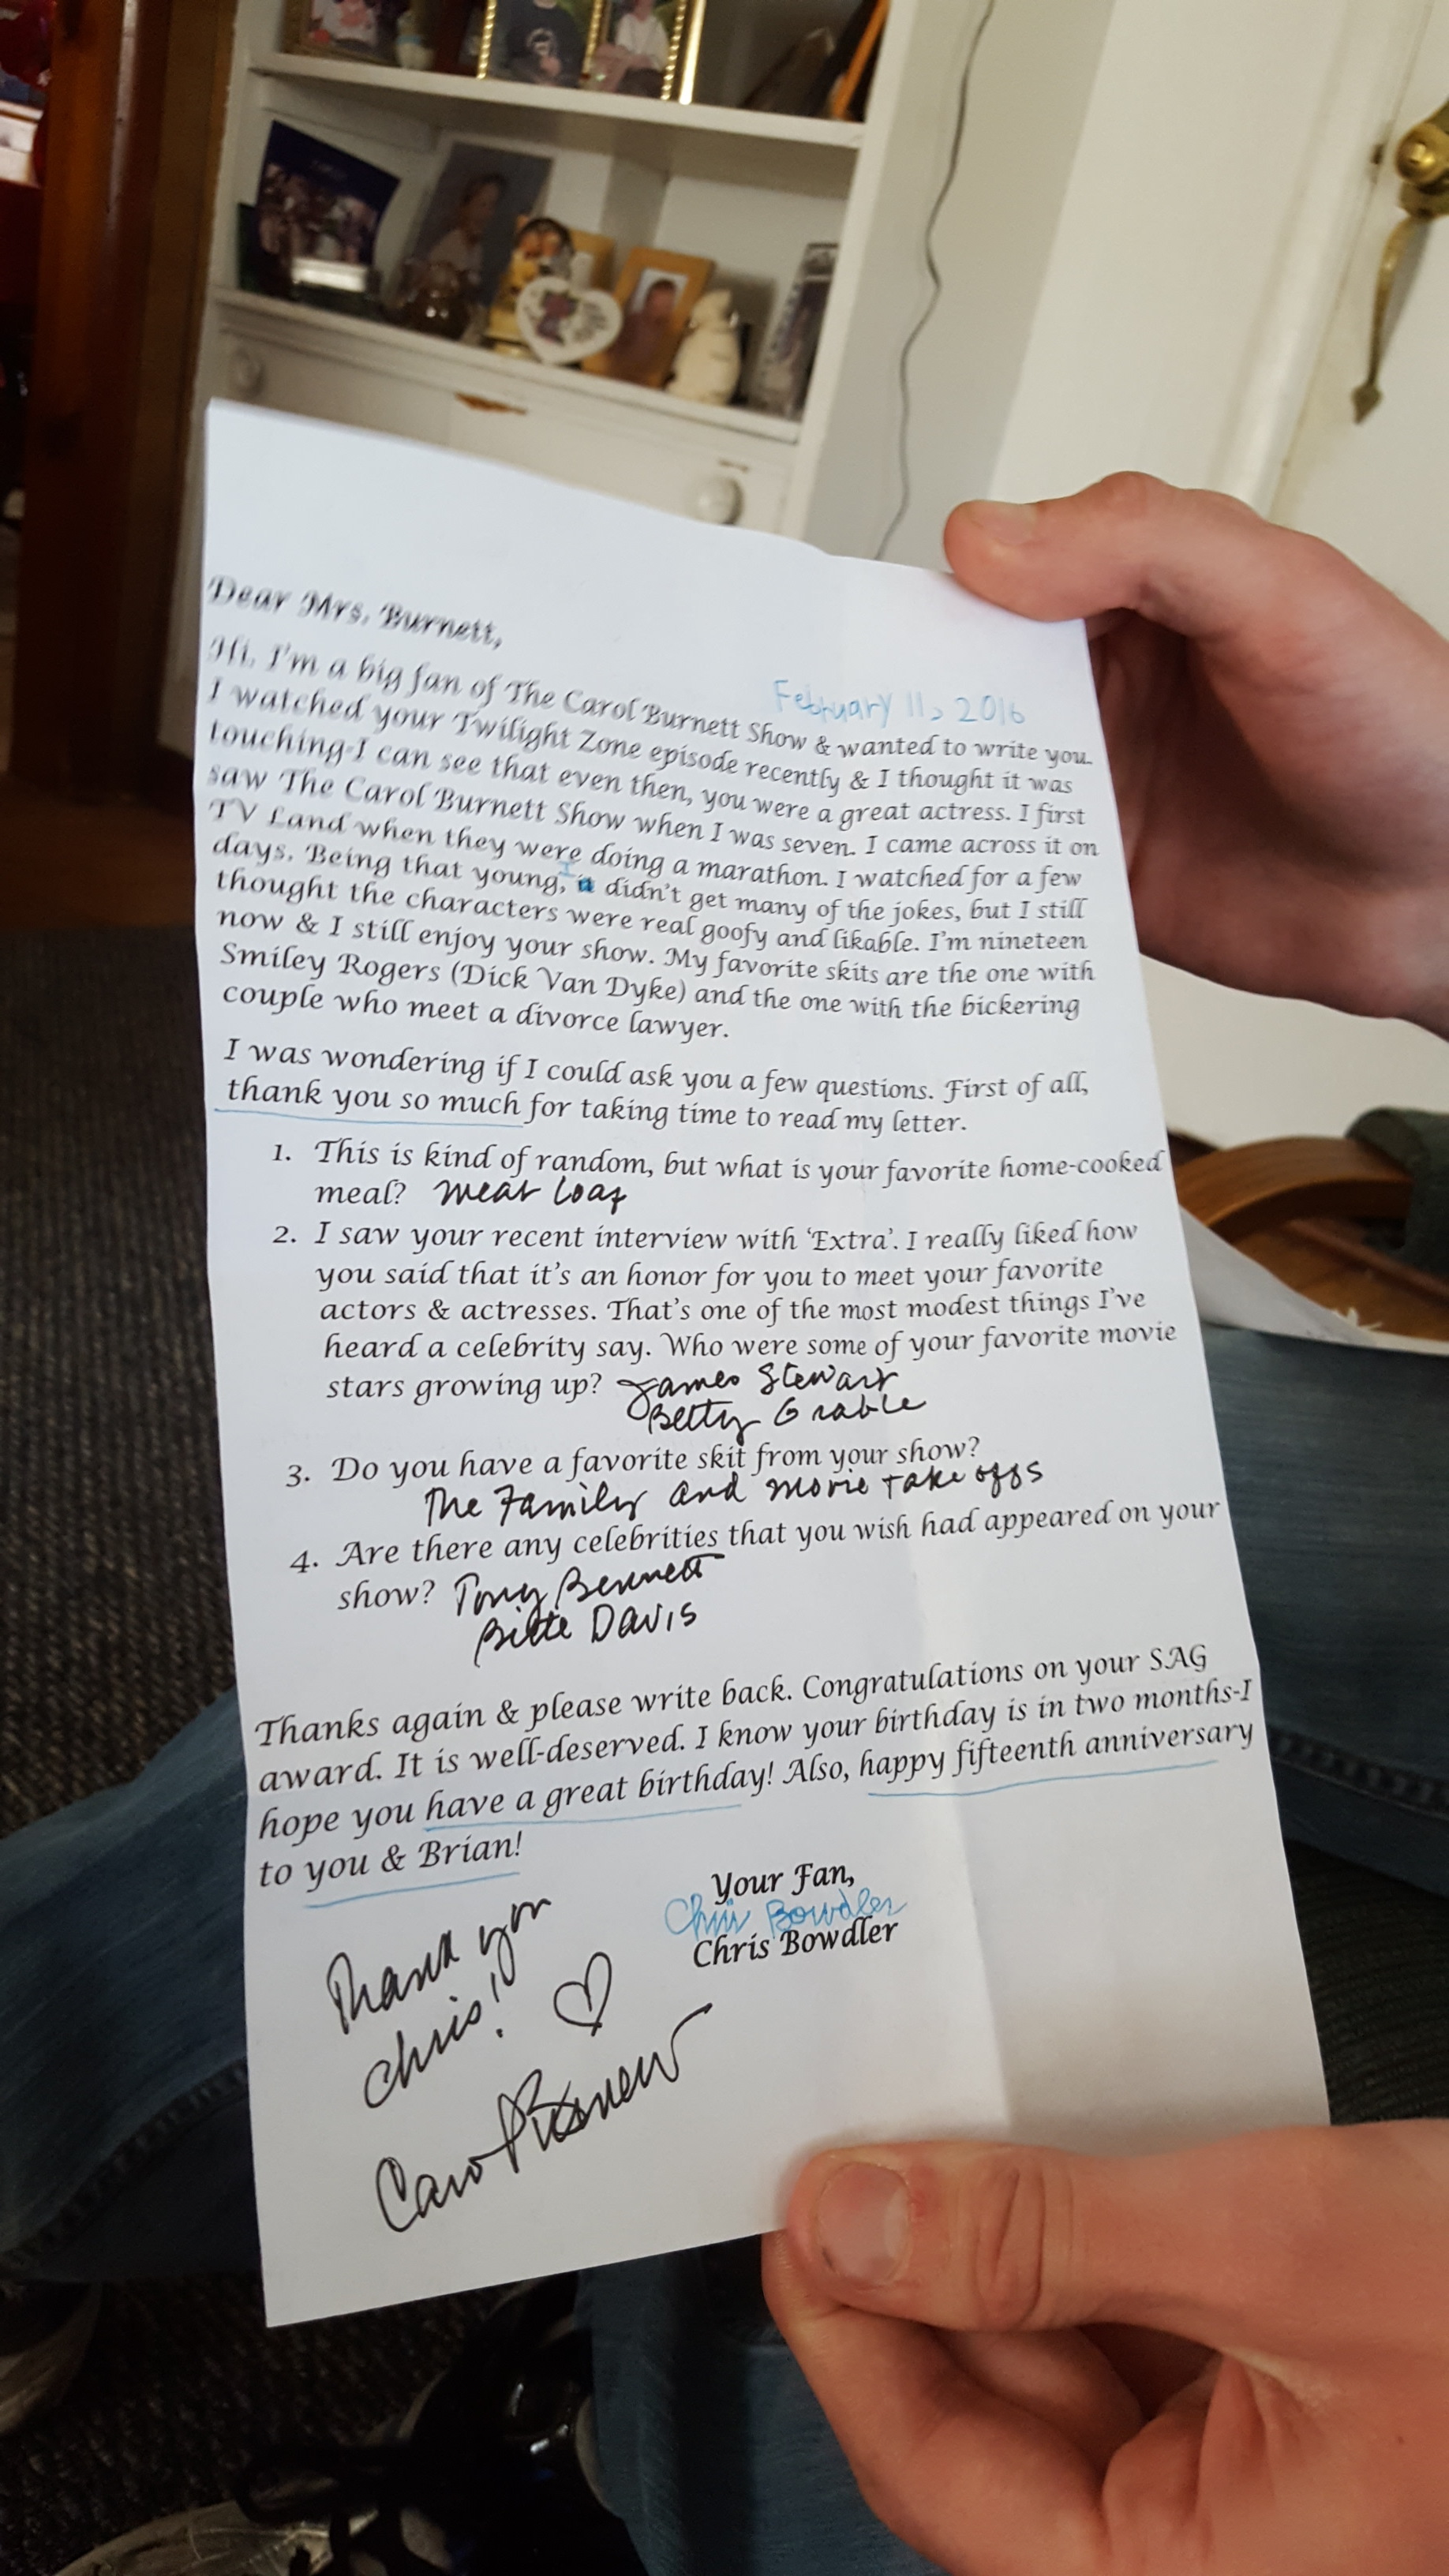 Dear Mrs. Burnett,
February 11, 2016
Hi, I'm a big fan of The Carol Burnett Show & wanted to write you.
I watched your Twilight Zone episode recently & I thought it was
touching-I can see that even then, you were a great actress. I first
saw The Carol Burnett Show when I was seven. I came across it on
TV Land when they were doing a marathon. I watched for a few
days. Being that young, I didn't get many of the jokes, but I still
thought the characters were real goofy and likable. I'm nineteen
now & I still enjoy your show. My favorite skits are the one with
Smiley Rogers (Dick Van Dyke) and the one with the bickering
couple who meet a divorce lawyer.
I was wondering if I could ask you a few questions. First of all,
thank you so much for taking time to read my letter.
1. This is kind of random, but what is your favorite home-cooked
meal? meat loaf
2. I saw your recent interview with 'Extra'. I really liked how
you said that it's an honor for you to meet your favorite
actors & actresses. That's one of the most modest things I've
heard a celebrity say. Who were some of your favorite movie
stars growing up? James Stewart
Betty Grable
3. Do you have a favorite skit from your show?
The Family and movie take offs
4. Are there any celebrities that you wish had appeared on your
show? Tony Bennett
Bette Davis
Thanks again & please write back. Congratulations on your SAG
award. It is well-deserved. I know your birthday is in two months-I
hope you have a great birthday! Also, happy fifteenth anniversary
to you & Brian!
Your Fan,
Chris Bowdler
Chris Bowdler
Thank you
Chris!
Carol Burnett